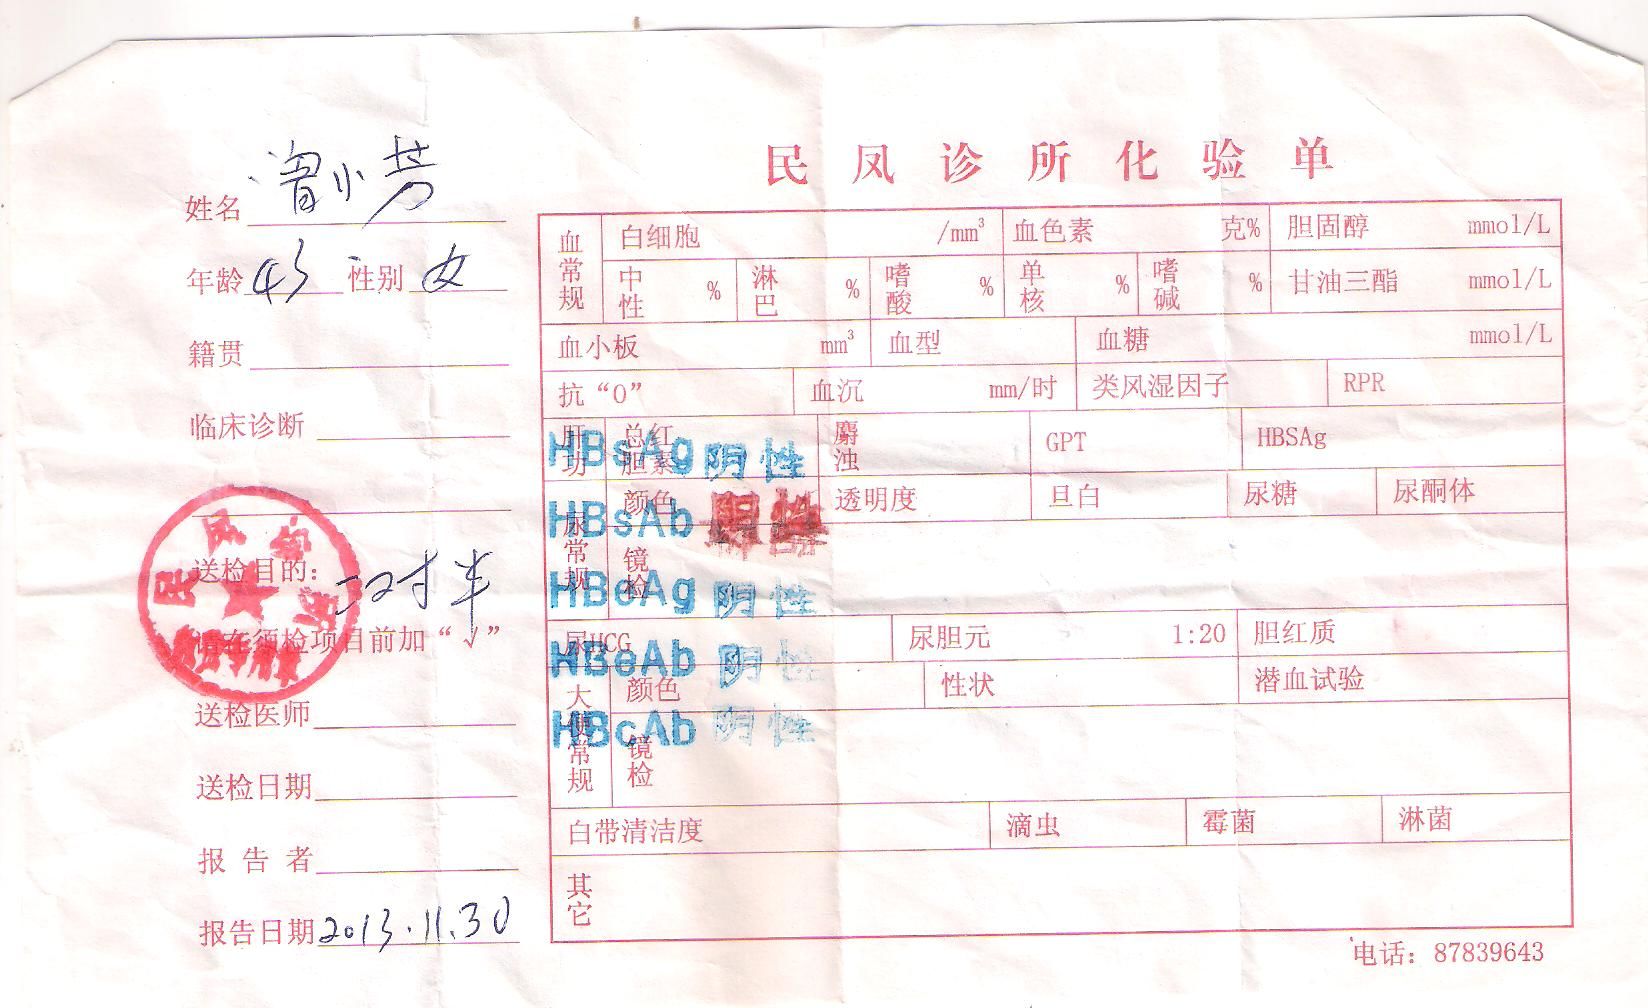 民凤诊所化验单
姓名 曾小芳
年龄 43 性别 女
籍贯
临床诊断
送检目的: 二对半
请在须检项目前加“√”
送检医师
送检日期
报告者
报告日期 2013.11.30
血常规 白细胞 /mm³ 血色素 克% 胆固醇 mmol/L
中性 % 淋巴 % 嗜酸 % 单核 % 嗜碱 % 甘油三酯 mmol/L
血小板 mm³ 血型 血糖 mmol/L
抗“O” 血沉 mm/时 类风湿因子 RPR
肝功 总红胆素 麝浊 GPT HBSAg
HBsAg 阴性
尿常规 颜色 透明度 旦白 尿糖 尿酮体
HBsAb 阴性
镜检
HBeAg 阴性
尿HCG 尿胆元 1:20 胆红质
HBeAb 阴性
大便常规 颜色 性状 潜血试验
HBcAb 阴性
镜检
白带清洁度 滴虫 霉菌 淋菌
其它
电话: 87839643
民凤诊所